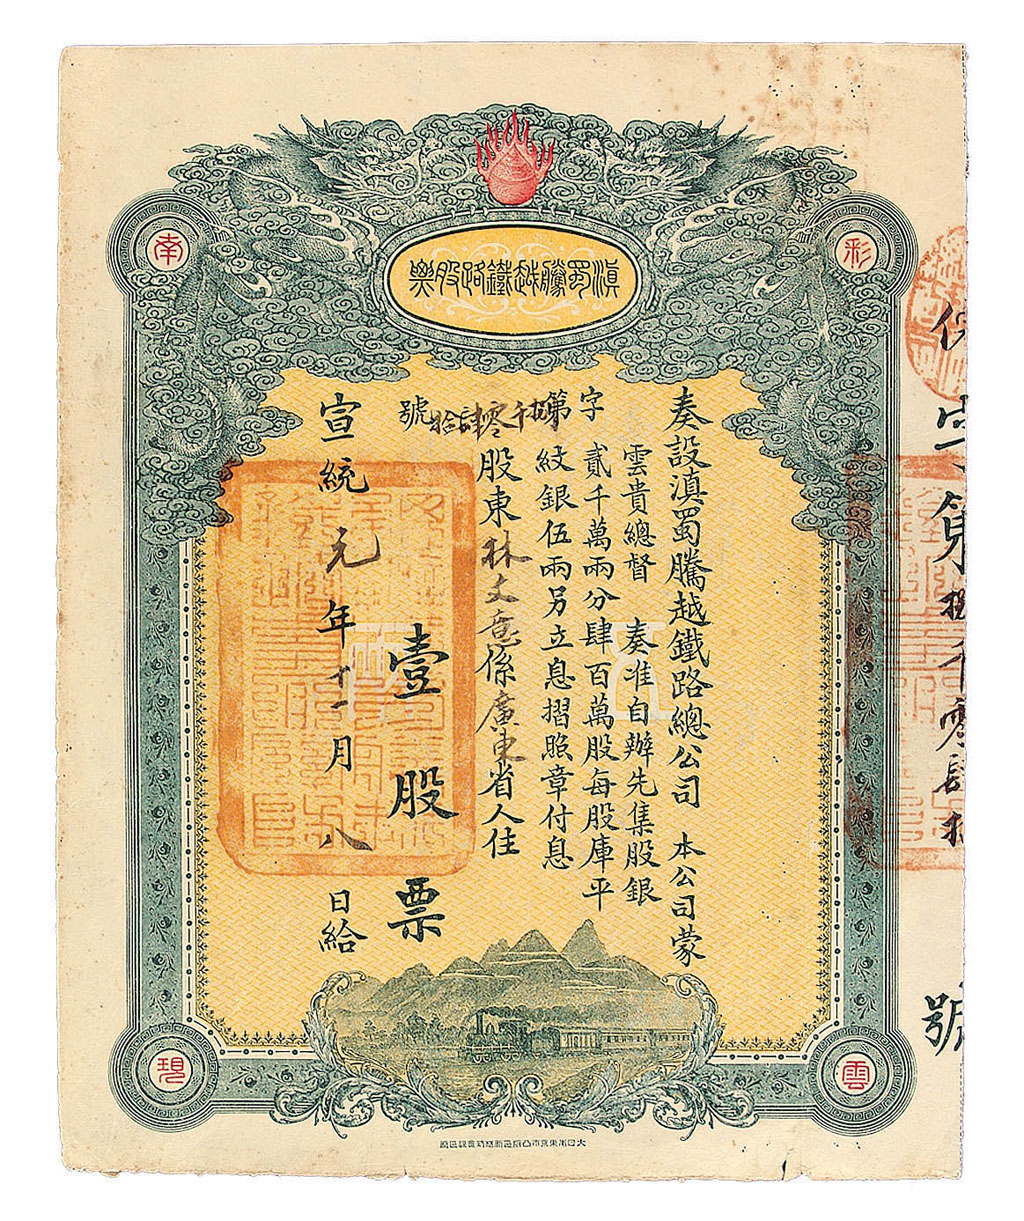 滇蜀騰越鐵路股票
彩
雲
南
現
奏設滇蜀騰越鐵路總公司 本公司蒙
雲貴總督 奏准自辦先集股銀
貳千萬兩分肆百萬股每股庫平
紋銀伍兩另立息摺照章付息
股東林文意係廣東省人住
字第拾千零肆拾號
壹股票
宣統元年十一月八日給
字第拾千零肆拾
號